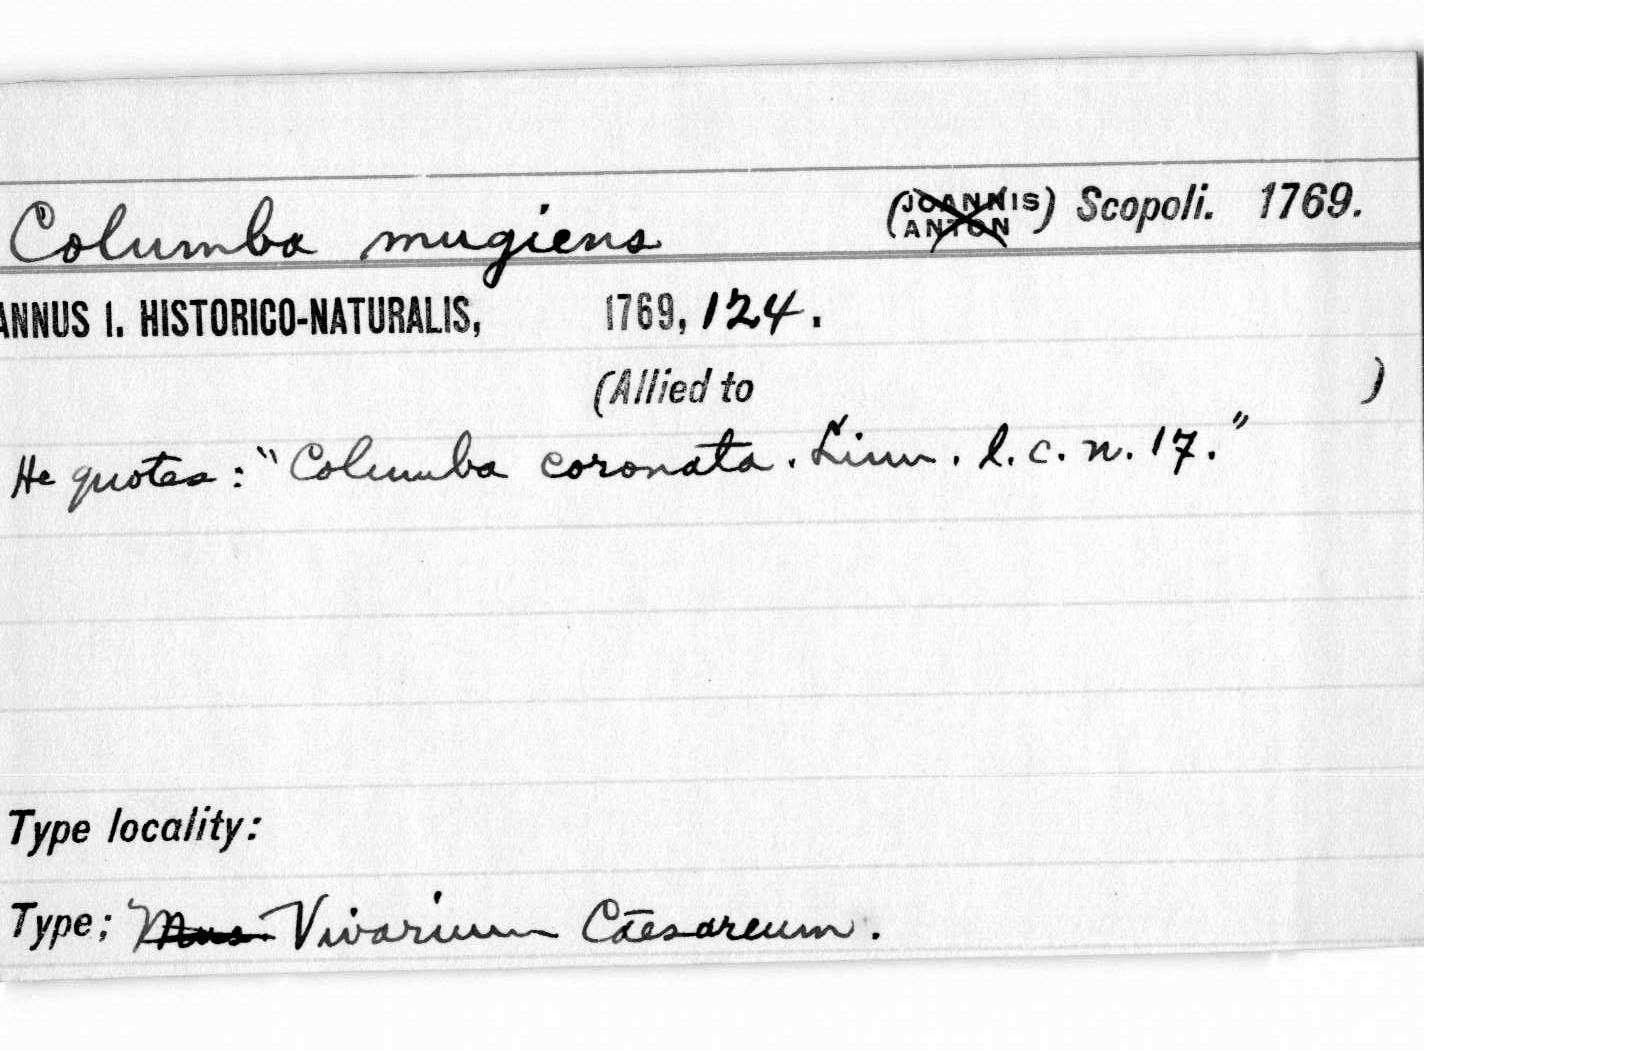 Columba mugiens (JOANNIS ANTON) Scopoli. 1769.
ANNUS I. HISTORICO-NATURALIS, 1769, 124.
(Allied to )
He quotes: "Columba coronata. Linn. l.c. n. 17."
Type locality:
Type; Mus. Vivarium Cæsareum.